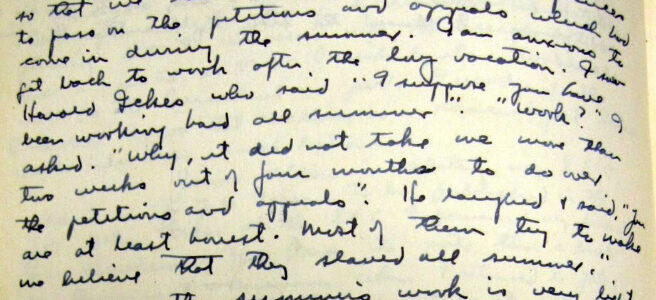 so that we
to pass on the petitions and appeals which had
come in during the summer. I am anxious to
get back to work after the long vacation. I saw
Harold Ickes who said "I suppose you have
been working hard all summer". "Work?" I
asked. "Why, it did not take me more than
two weeks out of four months to do over
the petitions and appeals". He laughed & said, "you
are at least honest. Most of them try to make
me believe that they slaved all summer."
the summer's work is very light